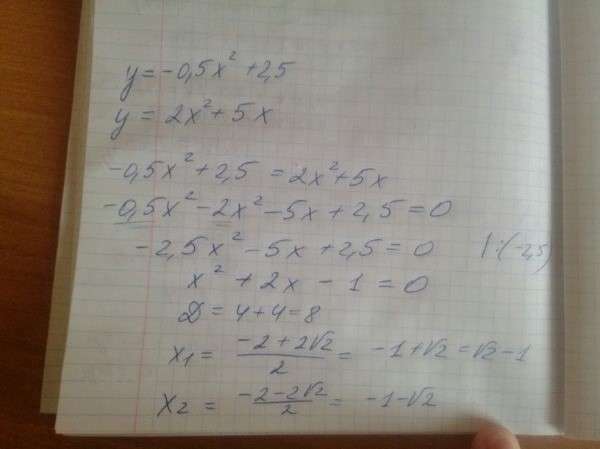 y = -0,5x² + 2,5
y = 2x² + 5x
-0,5x² + 2,5 = 2x² + 5x
-0,5x² - 2x² - 5x + 2,5 = 0
-2,5x² - 5x + 2,5 = 0 |:(-2,5)
x² + 2x - 1 = 0
D = 4 + 4 = 8
x₁ = (-2 + 2√2)/2 = -1 + √2 = √2 - 1
x₂ = (-2 - 2√2)/2 = -1 - √2